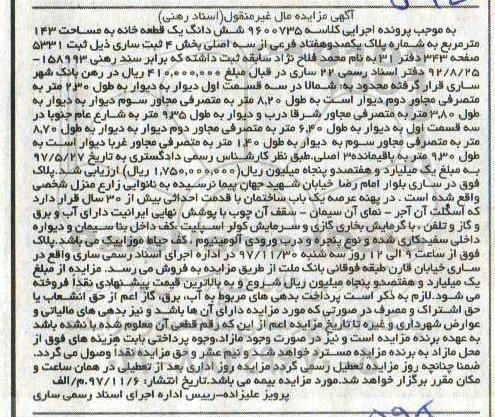 آگهی مزایده مال غیرمنقول(اسناد رهنی)
به موجب پرونده اجرایی کلاسه ۹۶۰۰۷۳۵ شش دانگ یک قطعه خانه به مساحت ۱۴۳
مترمربع به شماره پلاک یکصدوهفتاد فرعی از سه اصلی بخش ۴ ثبت ساری ذیل ثبت ۵۳۳۱
صفحه ۳۴۳ دفتر ۳۱ به نام محمد فلاح نژاد سابقه ثبت داشته که برابر سند رهنی ۱۵۸۹۹۳-
۹۲/۸/۲۵ دفتر اسناد رسمی ۲۲ ساری در قبال مبلغ ۴۱۰,۰۰۰,۰۰۰ ریال در رهن بانک شهر
ساری قرار گرفته محدود به شمالا در سه قسمت اول دیوار به دیوار به طول ۲,۳۰ متر به
متصرفی مجاور دوم دیوار است به طول ۸,۲۰ متر به متصرفی مجاور سوم دیوار به دیوار به
طول ۳,۸۰ متر به متصرفی مجاور شرقا درب و دیوار به طول ۹,۳۵ متر به شارع عام جنوبا در
سه قسمت اول به دیوار به طول ۶,۴۰ متر به متصرفی مجاور دوم دیوار به دیوار به طول ۸,۷۰
متر به متصرفی مجاور سوم به دیوار به طول ۱,۴۰ متر به متصرفی مجاور غربا دیوار است به
طول ۹,۳۰ متر به باقیمانده۳ اصلی.طبق نظر کارشناس رسمی دادگستری به تاریخ ۹۷/۵/۲۷
به مبلغ یک میلیارد و هفتصدو پنجاه میلیون ریال(۱,۷۵۰,۰۰۰,۰۰۰ ریال) ارزیابی شد.پلاک
فوق در ساری بلوار امام رضا خیابان شهید جهان پیما نرسیده به نانوایی زارع منزل شخصی
واقع شده است . در پهنه عرصه یک باب ساختمان با قدمت احداثی بیش از ۳۰ سال قرار دارد
که اسکلت آن آجر - نمای آن سیمان - سقف آن چوب با پوشش نهایی ایرانیت دارای آب و برق
و گاز و تلفن ، با گرمایش بخاری گازی و سرمایش کولر اسپلیت .کف داخل بنا سیمان و دیواره
داخلی سفیدکاری شده و نوع پنجره و درب ورودی آلومینیوم . کف حیاط موزاییک می باشد.پلاک
فوق از ساعت ۹ الی ۱۲ روز سه شنبه ۹۷/۱۱/۳۰ در اداره اجرای اسناد رسمی ساری واقع در
ساری خیابان قارن طبقه فوقانی بانک ملت از طریق مزایده به فروش می رسد. مزایده از مبلغ
یک میلیارد و هفتصدو پنجاه میلیون ریال شروع و به بالاترین قیمت پیشنهادی نقدا فروخته
می شود.لازم به ذکر است پرداخت بدهی های مربوط به آب، برق، گاز اعم از حق انشعاب یا
حق اشتراک و مصرف در صورتی که مورد مزایده دارای آن ها باشد و نیز بدهی های مالیاتی و
عوارض شهرداری و غیره تا تاریخ مزایده اعم از این که رقم قطعی آن معلوم شده یا نشده باشد
به عهده برنده مزایده است و نیز در صورت وجود مازاد،وجوه پرداختی بابت هزینه های فوق از
محل مازاد به برنده مزایده مسترد خواهد شد و نیم عشر و حق مزایده نقدا وصول می گردد.
ضمنا چنانچه روز مزایده تعطیل رسمی گردد مزایده روز اداری بعد از تعطیلی در همان ساعت و
مکان مقرر برگزار خواهد شد.مورد مزایده بیمه می باشد.تاریخ انتشار: ۹۷/۱۱/۶.م/الف
پرویز علیزاده-رییس اداره اجرای اسناد رسمی ساری